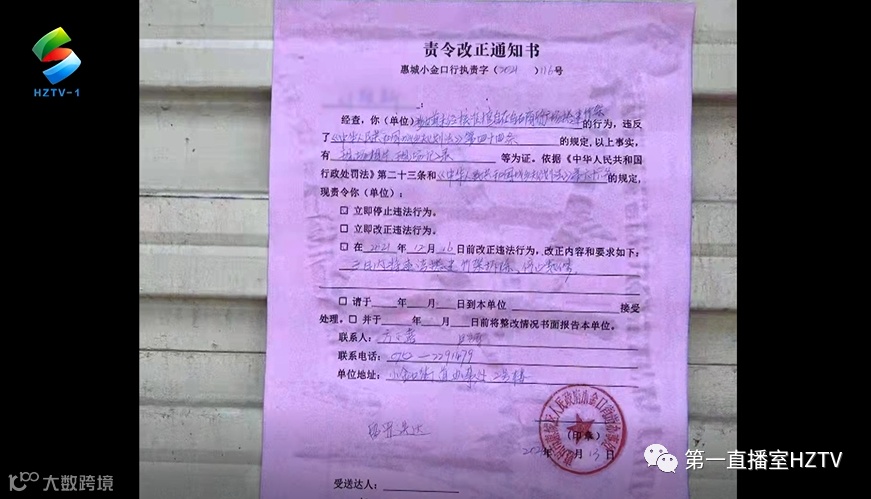 HZTV-1
责令改正通知书
惠城小金口行执责字（2021）116号
：
经查，你（单位）的行为，违反
了《中华人民共和国城乡规划法》第四十四条的规定，以上事实，
有现场相片、现场记录等为证。依据《中华人民共和国
行政处罚法》第二十三条和《中华人民共和国城乡规划法》的规定，
现责令你（单位）：
□ 立即停止违法行为。
□ 立即改正违法行为。
□ 在2021年12月16日前改正违法行为，改正内容和要求如下：
三日内
□ 请于 年 月 日到本单位 接受
处理。□ 并于 年 月 日前将整改情况书面报告本单位。
联系人：
联系电话：
单位地址：小金口街道办事处2号楼
留置送达
（印章）
月13日
受送达人：
大数跨境
第一直播室HZTV